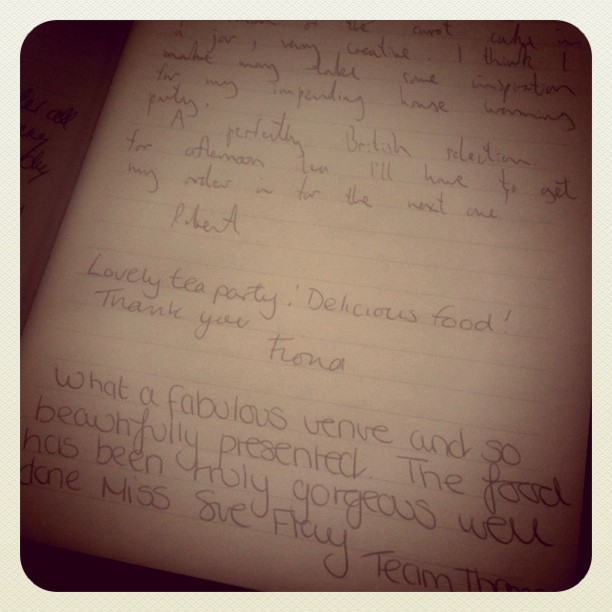 of the carrot cake in
a jar, very creative. I think I
might may take some inspiration
for my impending house warming
party.
A perfectly British selection
for afternoon tea I'll have to get
my order in for the next one
Robert
Lovely tea party! Delicious food!
Thank you
Fiona
What a fabulous venue and so
beautifully presented. The food
has been truly gorgeous well
done Miss Sue Flay
Team